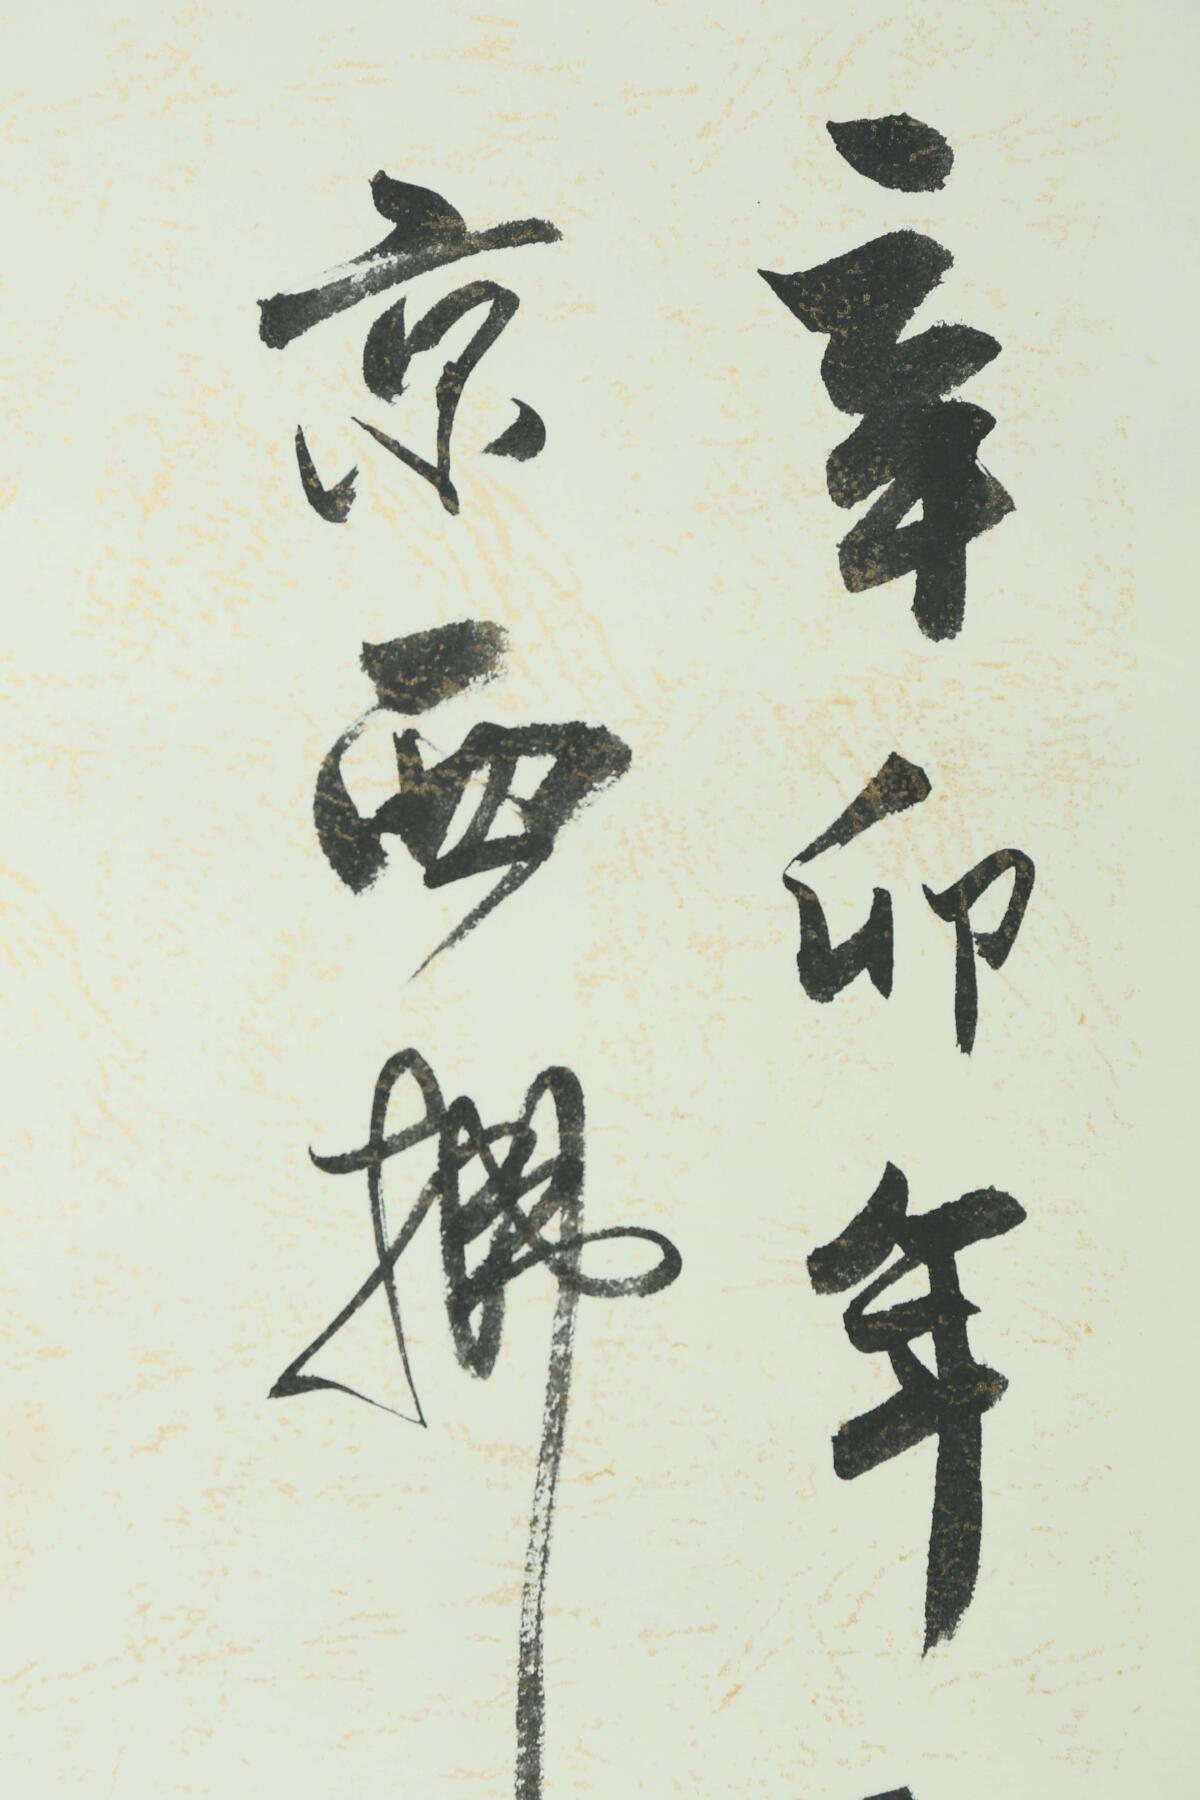 辛卯年
京西